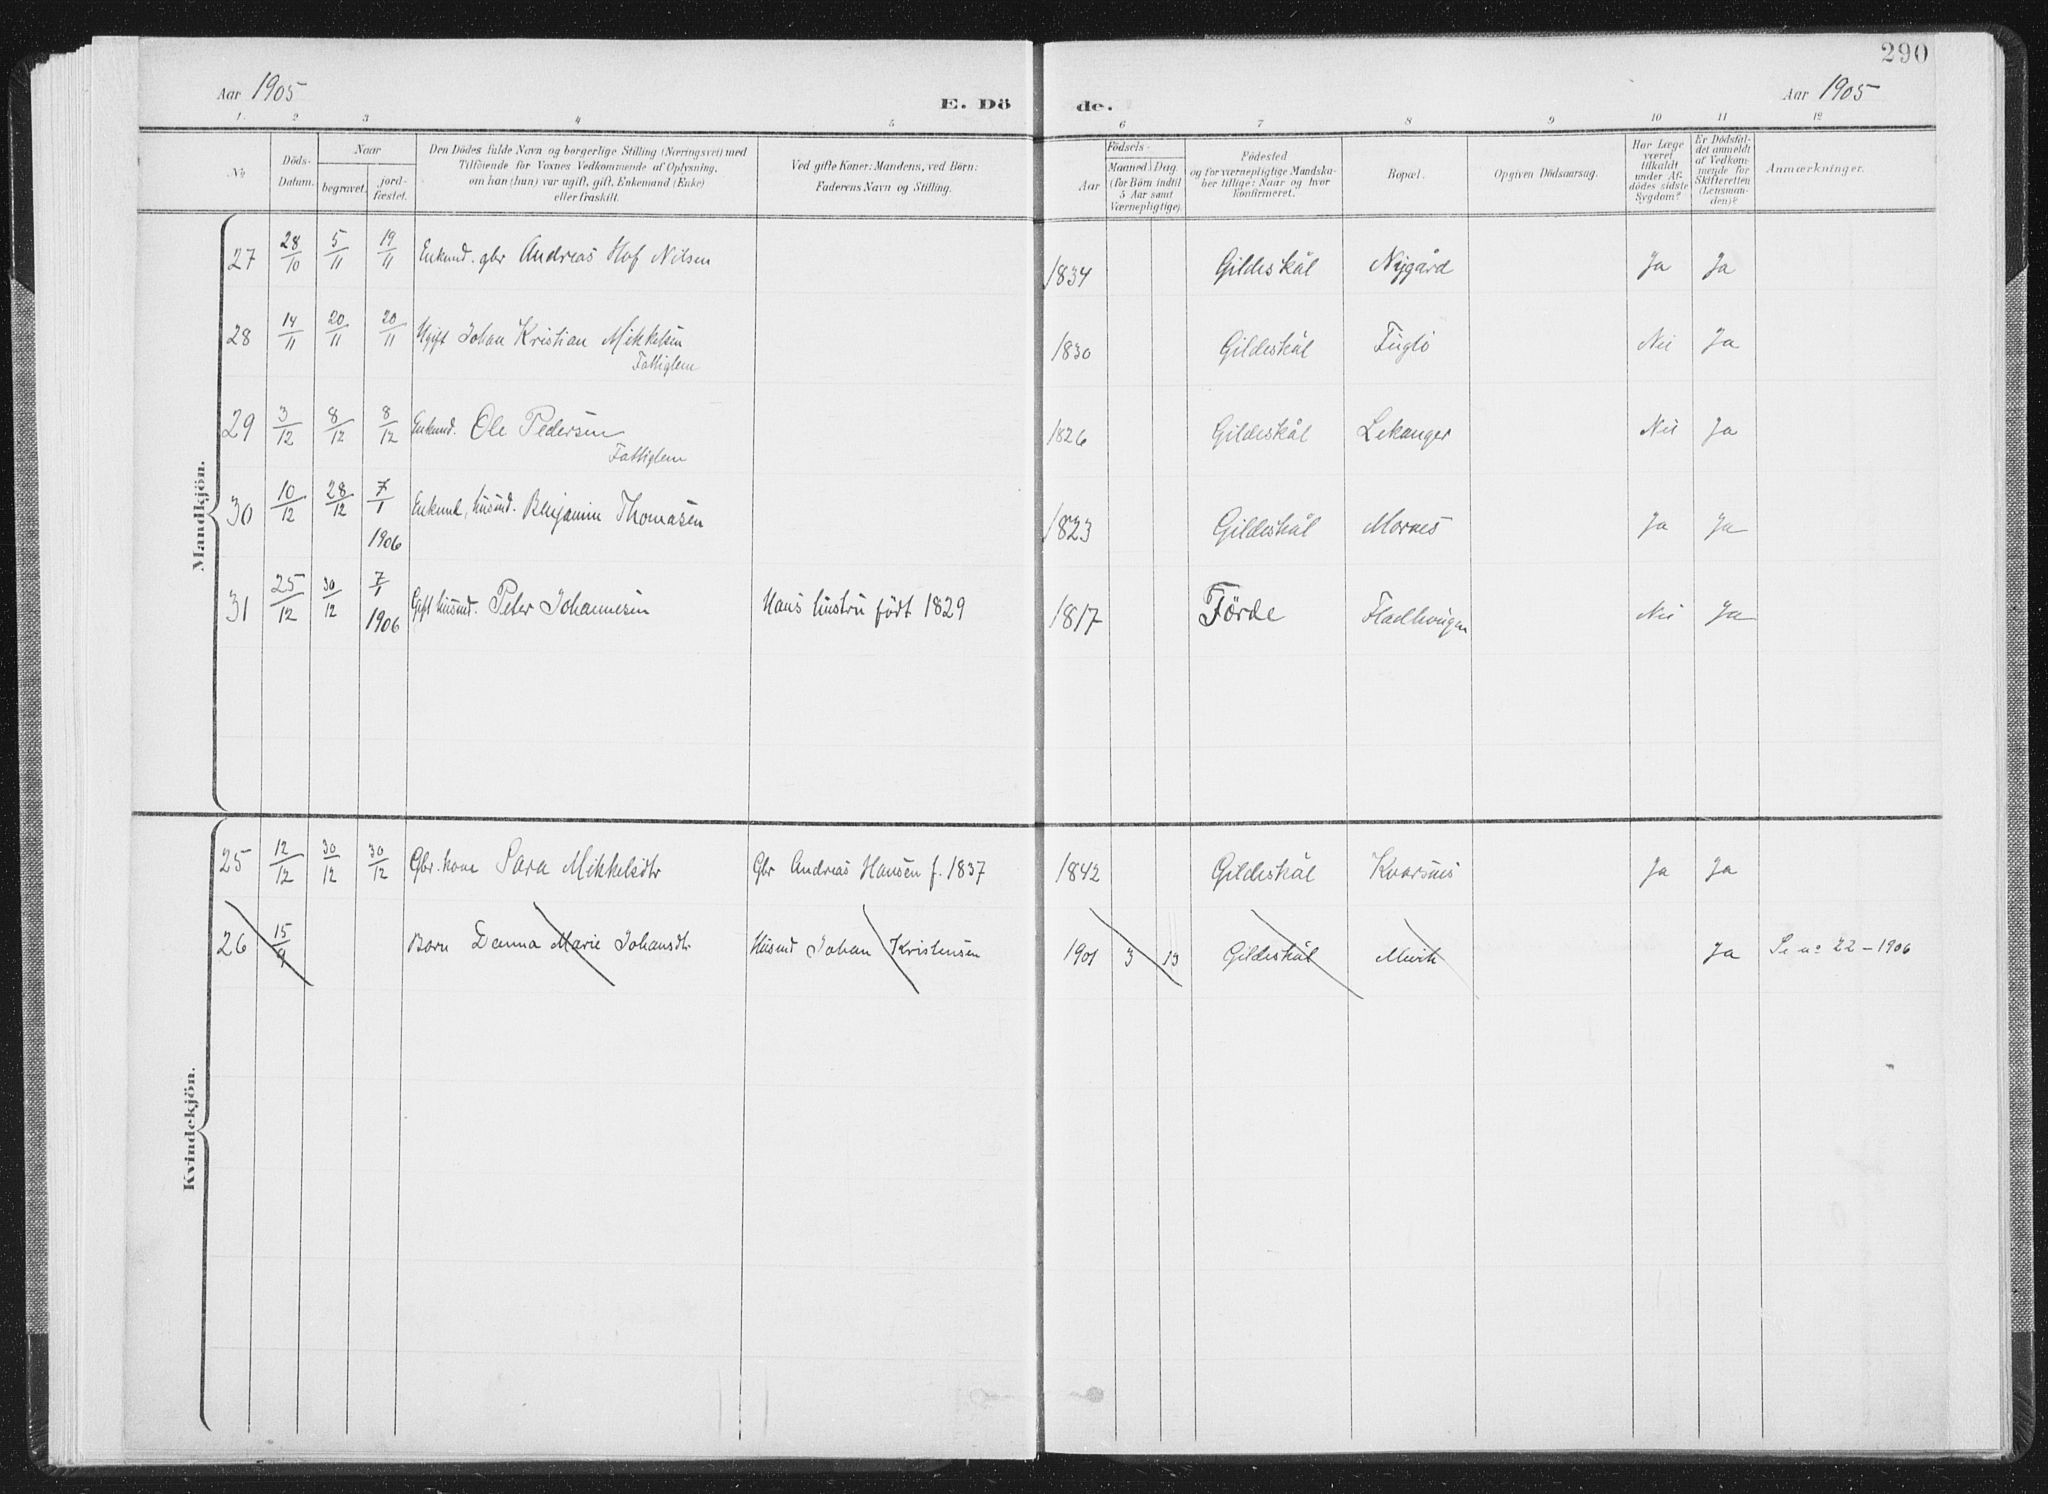 290
Aar 1905
E. Dö
de.
Aar 1905
1. 2 3 4 5 6 7 8 9 10 11 12
No
Döds-Datum.
Naar
begravet.
jord-fæstet.
Den Dödes fulde Navn og borgerlige Stilling (Næringsvei) med
Tilföiende for Voxnes Vedkommende af Oplysning,
om han (hun) var ugift, gift, Enkemand (Enke)
eller fraskilt.
Ved gifte Koner: Mandens, ved Börn:
Faderens Navn og Stilling.
Aar
Födsels-
Maaned. Dag.
(for Börn indtil
5 Aar samt
Værnepligtige).
Födested
og for værnepligtige Mandska-
ber tillige: Naar og hvor
konfirmeret.
Bopæl.
Opgiven Dödsaarsag.
Har Læge
været
tilkaldt
under Af-
dödes sidste
Sygdom?
Er Dödsfal-
det anmeldt
af Vedkom-
mende for
Skifteretten
(Lensman-
den)?
Anmærkninger.
Mandkjön.
27 28/10 5/11 19/11 Enkmd. gbr Andreas Hof Nilsen 1834 Gildeskål Nygård Ja Ja
28 14/11 20/11 20/11 Ugift Johan Kristian Mikkelsen 1830 Gildeskål Fuglö Nei Ja
Fattiglem
29 3/12 8/12 8/12 Enkmd. Ole Pedersen 1826 Gildeskål Lekanger Nei Ja
Fattiglem
30 10/12 28/12 7/1 1906 Enkmd, husmd. Benjamin Thomasen 1823 Gildeskål Mornes Ja Ja
31 25/12 30/12 7/1 1906 Gift husmd. Peter Johannesen Hans hustru födt 1829 1817 Förde Fladhougen Nei Ja
Kvindekjön.
25 12/12 30/12 30/12 Gbr. kone Sara Mikkelsdtr Gbr Andreas Hansen f. 1837 1842 Gildeskål Kvarsnes Ja Ja
26 15/9 Barn Danna Marie Johansdtr Husmd Johan Kristensen 1901 3 13 Gildeskål Mevik Ja Se no 22-1906